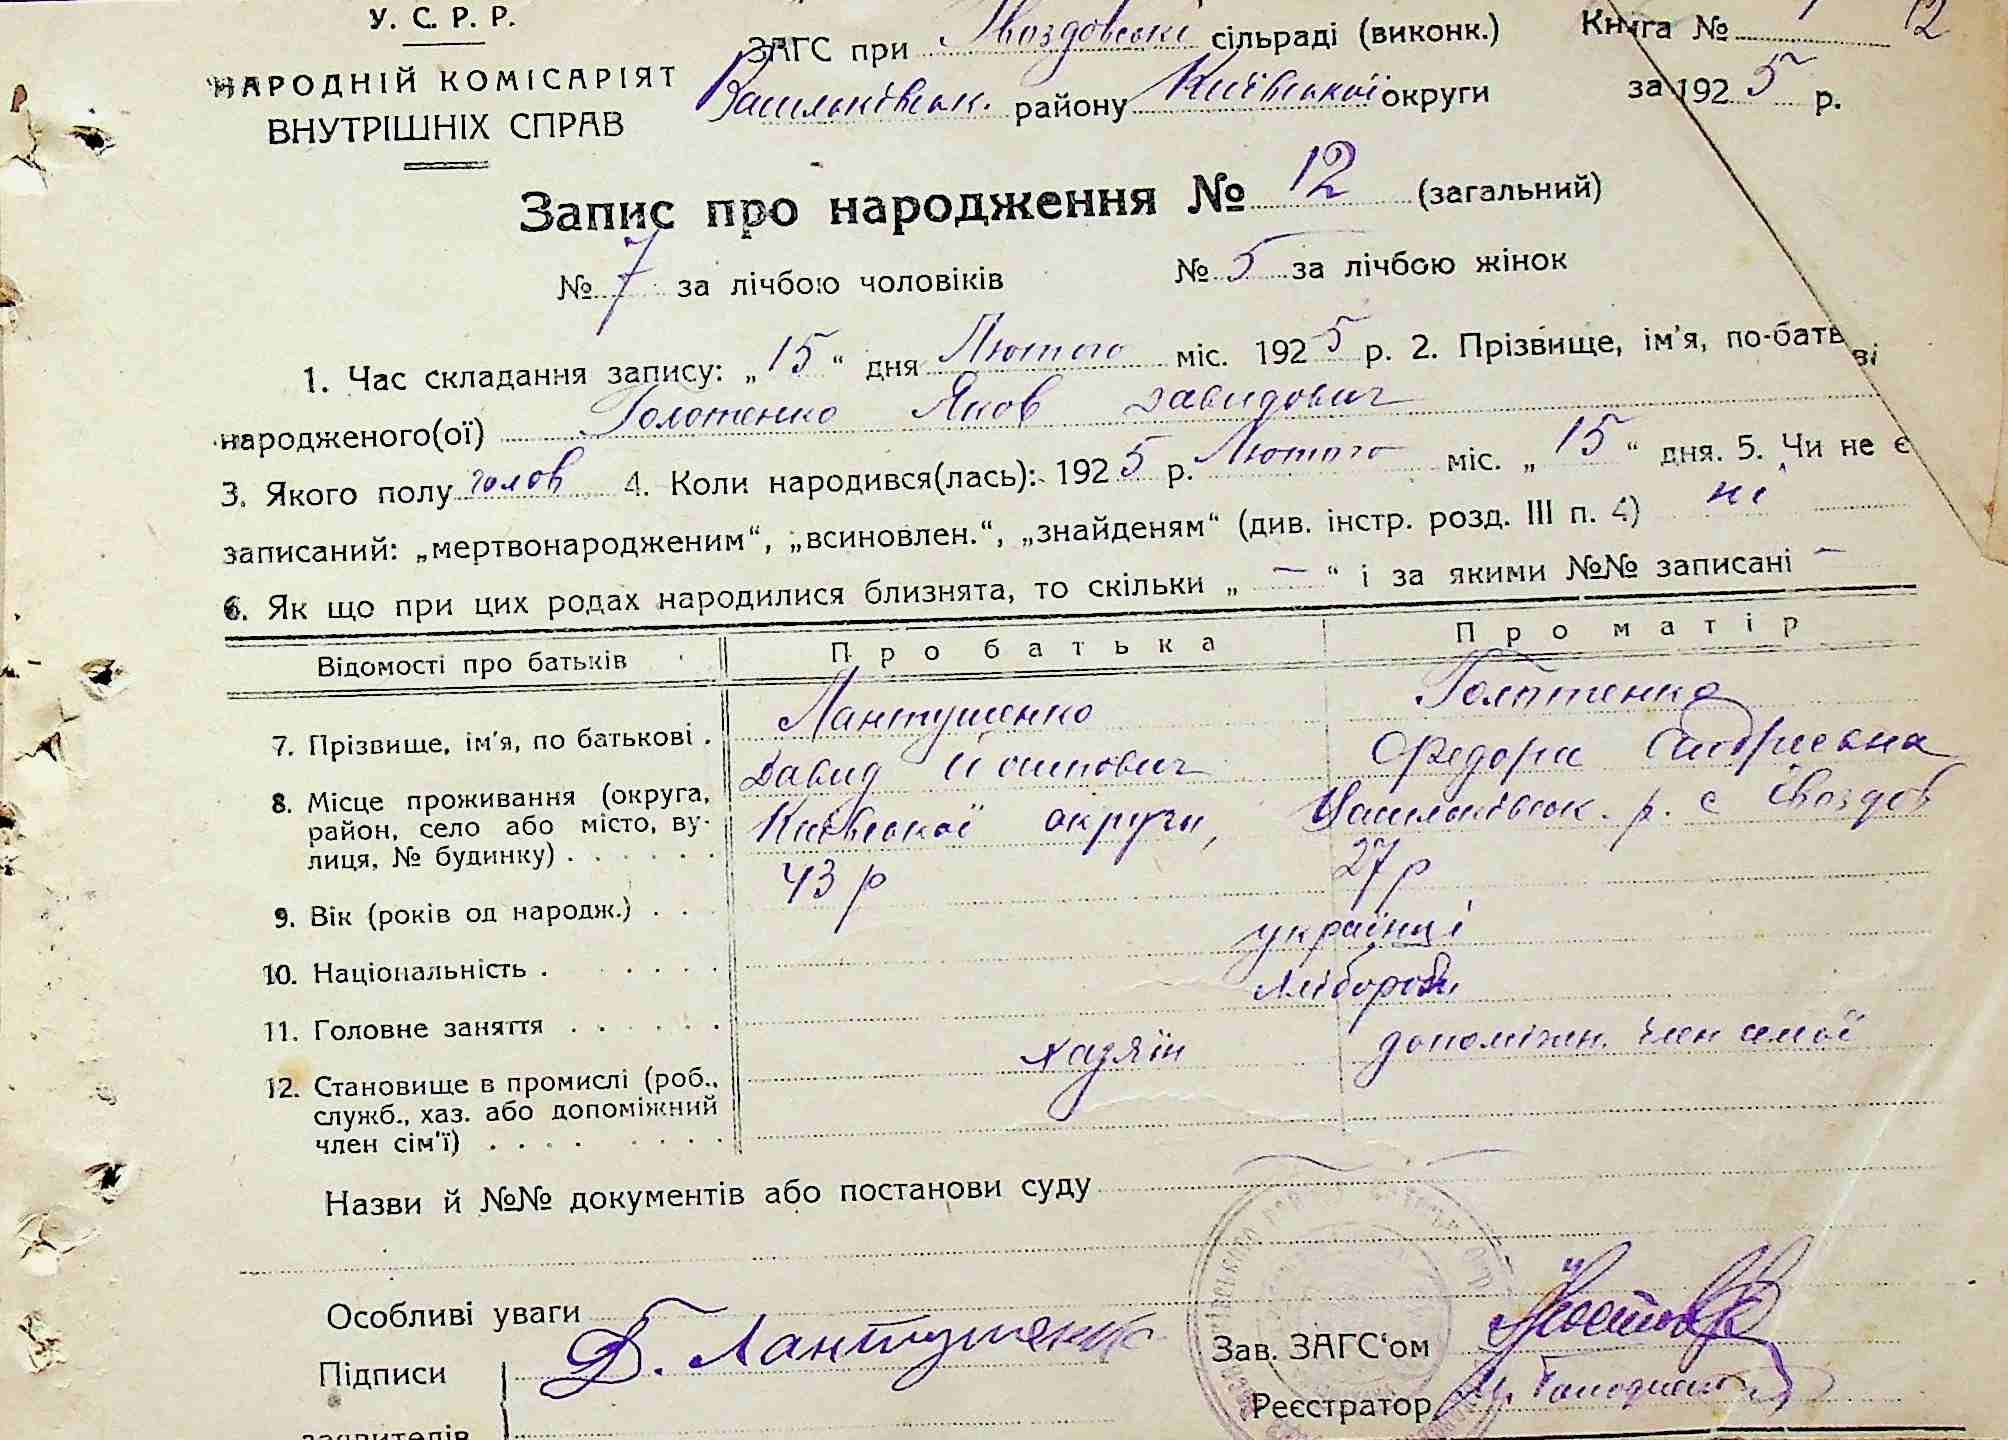 У. С. Р. Р.
НАРОДНІЙ КОМІСАРІЯТ
ВНУТРІШНІХ СПРАВ
ЗАГС при Гвоздовські сільраді (виконк.) Книга № 12
Васильківськ. району Київської округи за 1925 р.
Запис про народження № 12 (загальний)
№ 7 за лічбою чоловіків № 5 за лічбою жінок
1. Час складання запису: „15“ дня Лютого міс. 1925 р. 2. Прізвище, ім'я, по-батькові
народженого(ої) Голотенко Яков Давидович
3. Якого полу чолов 4. Коли народився(лась): 1925 р. Лютого міс. „15“ дня. 5. Чи не є
записаний: „мертвонародженим“, „всиновлен.“, „знайденям“ (див. інстр. розд. III п. 4) ні
6. Як що при цих родах народилися близнята, то скільки „ — “ і за якими №№ записані —
Відомості про батьків Про батька Про матір
7. Прізвище, ім'я, по батькові . Лантушенко Голотенко
Давид Йосипович Федора Андриевна
8. Місце проживання (округа, район, село або місто, вулиця, № будинку) . . . . . . Київської округи, Васильківськ. р. с Гвоздов
9. Вік (років од народж.) . . . 43 р 27 р
10. Національність . . . . . . українці
11. Головне заняття . . . . . . хлібороби
12. Становище в промислі (роб., служб., хаз. або допоміжний член сім'ї) . . . . . . . . хазяїн допоміжн. член семої
Назви й №№ документів або постанови суду
Особливі уваги
Підписи Д. Лантушенко Зав. ЗАГС‘ом
Реєстратор
заявителів